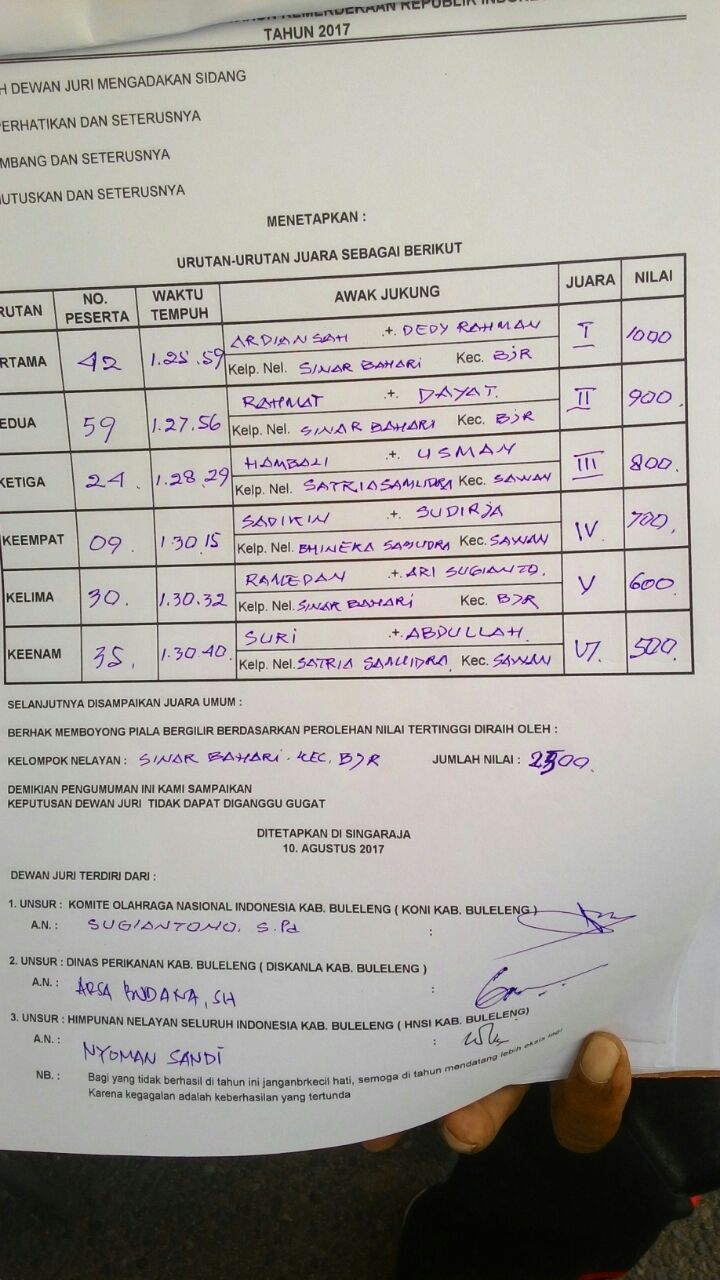 KEMERDEKAAN REPUBLIK
TAHUN 2017
H DEWAN JURI MENGADAKAN SIDANG
ERHATIKAN DAN SETERUSNYA
MBANG DAN SETERUSNYA
UTUSKAN DAN SETERUSNYA
MENETAPKAN :
URUTAN-URUTAN JUARA SEBAGAI BERIKUT
RUTAN NO. PESERTA WAKTU TEMPUH AWAK JUKUNG JUARA NILAI
RTAMA 42 1.25.59 ARDIANSAH .+. DEDY RAHMAN I 1000
Kelp. Nel. SINAR BAHARI Kec. BJR
EDUA 59 1.27.56 RAHMAT .+. DAYAT. II 900.
Kelp. Nel. SINAR BAHARI Kec. BJR
KETIGA 24. 1.28.29 HAMBALI .+. USMAN III 800.
Kelp. Nel. SATRIA SAMUDRA Kec. SAWAN
KEEMPAT 09. 1.30.15 SADIKIN .+. SUDIRJA IV. 700.
Kelp. Nel. BHINEKA SAMUDRA Kec. SAWAN
KELIMA 30. 1.30.32 RAMEDAN .+. ARI SUGIANTO. V 600.
Kelp. Nel. SINAR BAHARI Kec. BJR
KEENAM 35. 1.30.40. SURI .+. ABDULLAH. VI. 500.
Kelp. Nel. SATRIA SAMUDRA. Kec. SAWAN
SELANJUTNYA DISAMPAIKAN JUARA UMUM :
BERHAK MEMBOYONG PIALA BERGILIR BERDASARKAN PEROLEHAN NILAI TERTINGGI DIRAIH OLEH :
KELOMPOK NELAYAN : SINAR BAHARI. KEC. BJR JUMLAH NILAI : 2500.
DEMIKIAN PENGUMUMAN INI KAMI SAMPAIKAN
KEPUTUSAN DEWAN JURI TIDAK DAPAT DIGANGGU GUGAT
DITETAPKAN DI SINGARAJA
10. AGUSTUS 2017
DEWAN JURI TERDIRI DARI :
1. UNSUR : KOMITE OLAHRAGA NASIONAL INDONESIA KAB. BULELENG ( KONI KAB. BULELENG )
A.N. : SUGIANTONO. S.Pd :
2. UNSUR : DINAS PERIKANAN KAB. BULELENG ( DISKANLA KAB. BULELENG )
A.N. : ARSA BUDANA, SH :
3. UNSUR : HIMPUNAN NELAYAN SELURUH INDONESIA KAB. BULELENG ( HNSI KAB. BULELENG)
A.N. : NYOMAN SANDI :
NB. : Bagi yang tidak berhasil di tahun ini janganbrkecil hati, semoga di tahun mendatang lebih eksis lagi
Karena kegagalan adalah keberhasilan yang tertunda